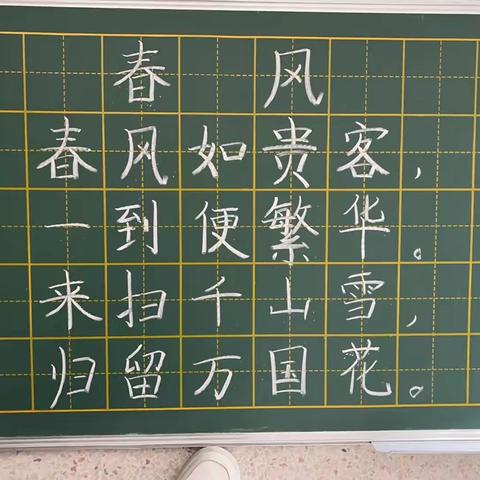 春风
春风如贵客，
一到便繁华。
来扫千山雪，
归留万国花。